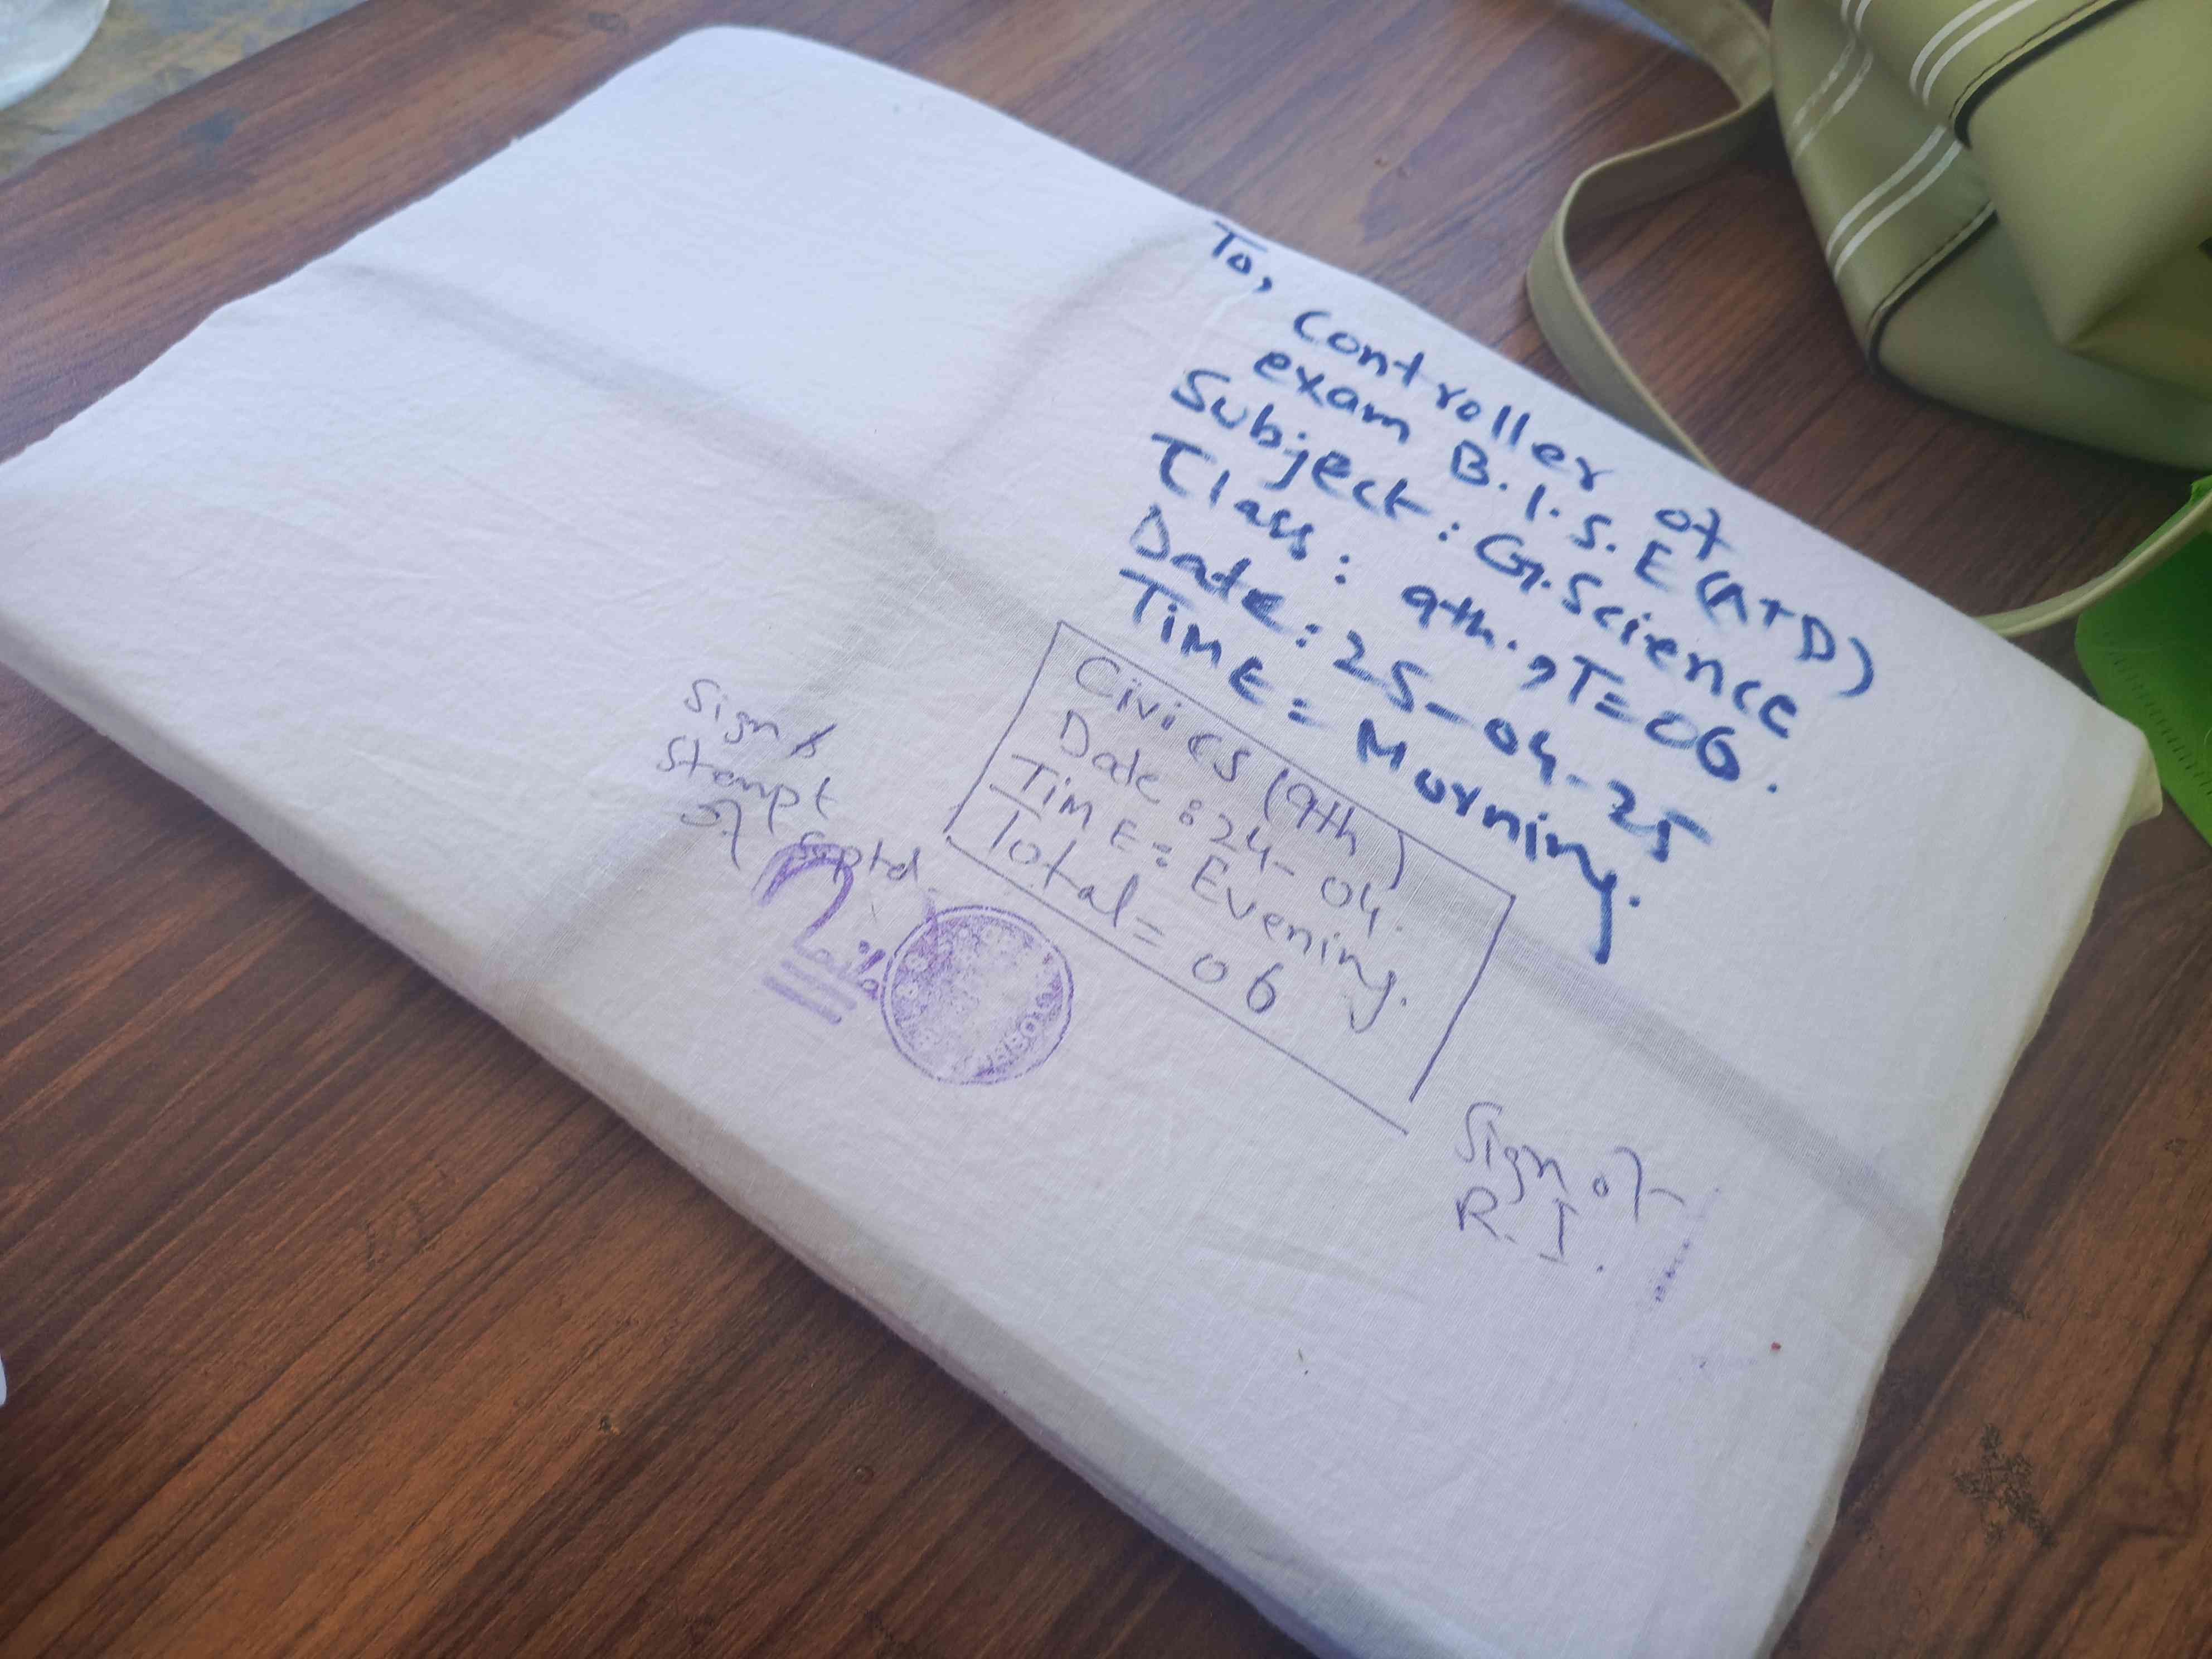 To,
Controller of
exam B.I.S.E (ATD)
Subject: G.Science
Class: 9th., T=06.
Date: 25-04-25
TimE = Morning.
Civics (9th)
Date: 24-04.
TimE = Evening.
Total = 06
Sign &
Stampt
of Suptd.
Sign of
R.I.